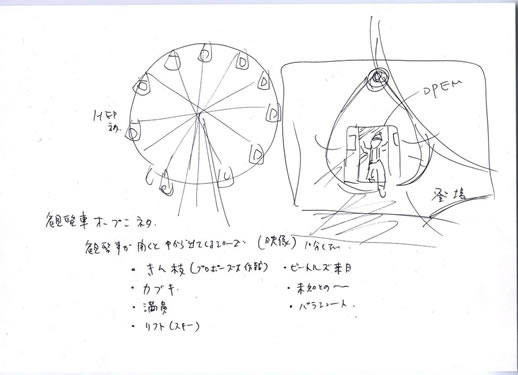 OPEN
登場
観覧車オープニネタ.
観覧車が開くと中から出てくる (映像)
・きん枝(プロポーズ大作戦)
・カブキ
・満員
・リフト(スキー)
・ビートルズ来日
・未知との〜
・パラシュート